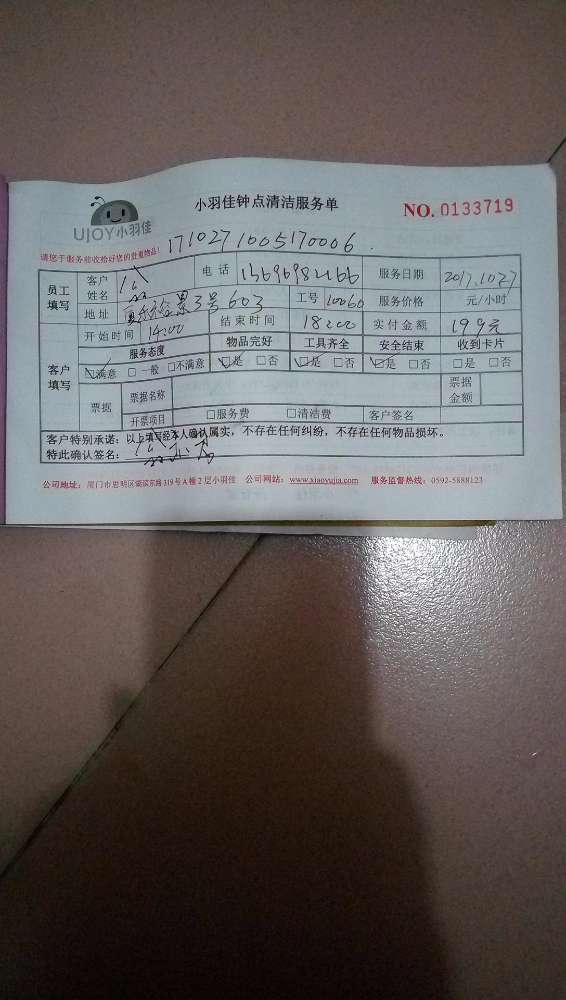 UJOY小羽佳
小羽佳钟点清洁服务单
NO. 0133719
请您于服务前收给好您的贵重物品!
1710271005170006.
员工填写 客户姓名 电话 服务日期 2017.10.27
地址 3号603 工号 10060 服务价格 元/小时
开始时间 14:00 结束时间 18:00 实付金额 199元
客户填写 服务态度 物品完好 工具齐全 安全结束 收到卡片
☑满意 □一般 □不满意 ☑是 □否 ☑是 □否 ☑是 □否 □是 □否
票据 票据名称 票据金额
开票项目 □服务费 □清洁费 客户签名
客户特别承诺：以上填写经本人确认属实，不存在任何纠纷，不存在任何物品损坏。
特此确认签名：
公司地址：厦门市思明区湖滨东路319号A幢2层小羽佳 公司网站：www.xiaoyujia.com 服务监督热线：0592-5888123